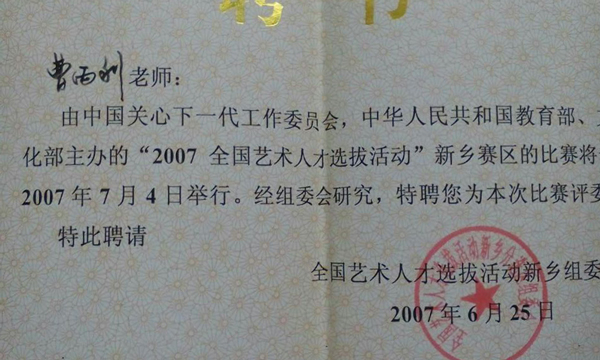 聘书
曹丙利老师：
由中国关心下一代工作委员会，中华人民共和国教育部、
化部主办的“2007 全国艺术人才选拔活动”新乡赛区的比赛将
2007年7月4日举行。经组委会研究，特聘您为本次比赛评委
特此聘请
全国艺术人才选拔活动新乡组委
2007年6月25日